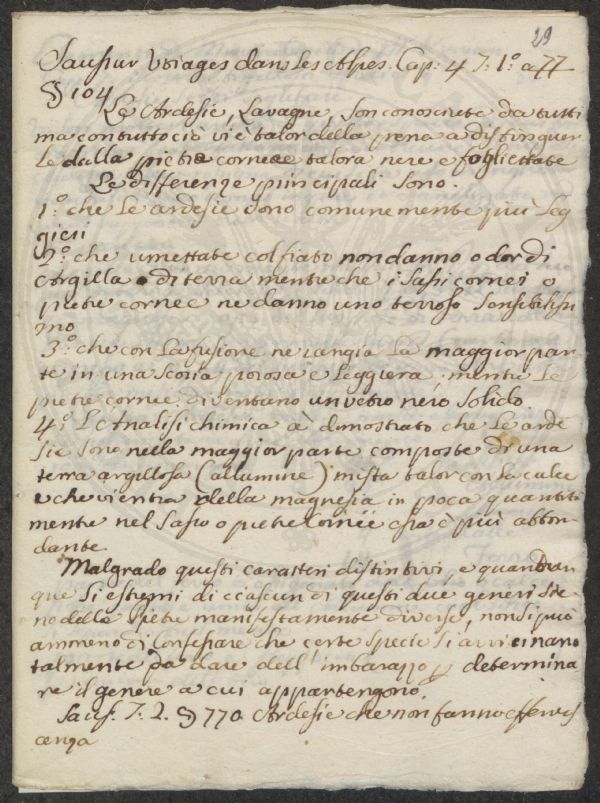 29
Sausur Voiages dans Les Alpes. Cap: 4 T: 1.º a 77
§ 104
Le Ardesie, Lavagne, son conosciute da tutti
ma con tutto ciò vi è talor della pena a distinguer
le dalla pietre cornee talora nere e fogliettate
Le differenze principali sono.
1.º che Le ardesie sono comunemente più Leg
gieri
2.º che umettate col fiato non danno odor di
Argilla o di terra mentre che i Sassi cornei o
pietre cornee ne danno uno terroso sensibilissi
mo
3.º che con La fusione ne cangia La maggior par
te in una scoria porosa e Leggiera, mentre Le
pietre cornee diventano un vetro nero solido
4.º L'Analisi chimica à dimostrato che Le arde
sie sono nella maggior parte composte di una
terra argillosa (allumine) mista talor con la calce
e che vi entra della magnesia in poca quantità
mentre nel Sasso o pietre cornee essa è più abbon
dante
Malgrado questi caratteri distintivi, e quantun
que Si estremi di ciascun di questi due generi sie
no delle Pietre manifestamente diverse, non si può
ammeno di Confessare che certe specie si avvicinano
talmente da dare dell' imbarazzo determina
re il genere a cui appartengono.
Sauss. T. 2. § 770 Ardesie che non fanno efferves
cenza